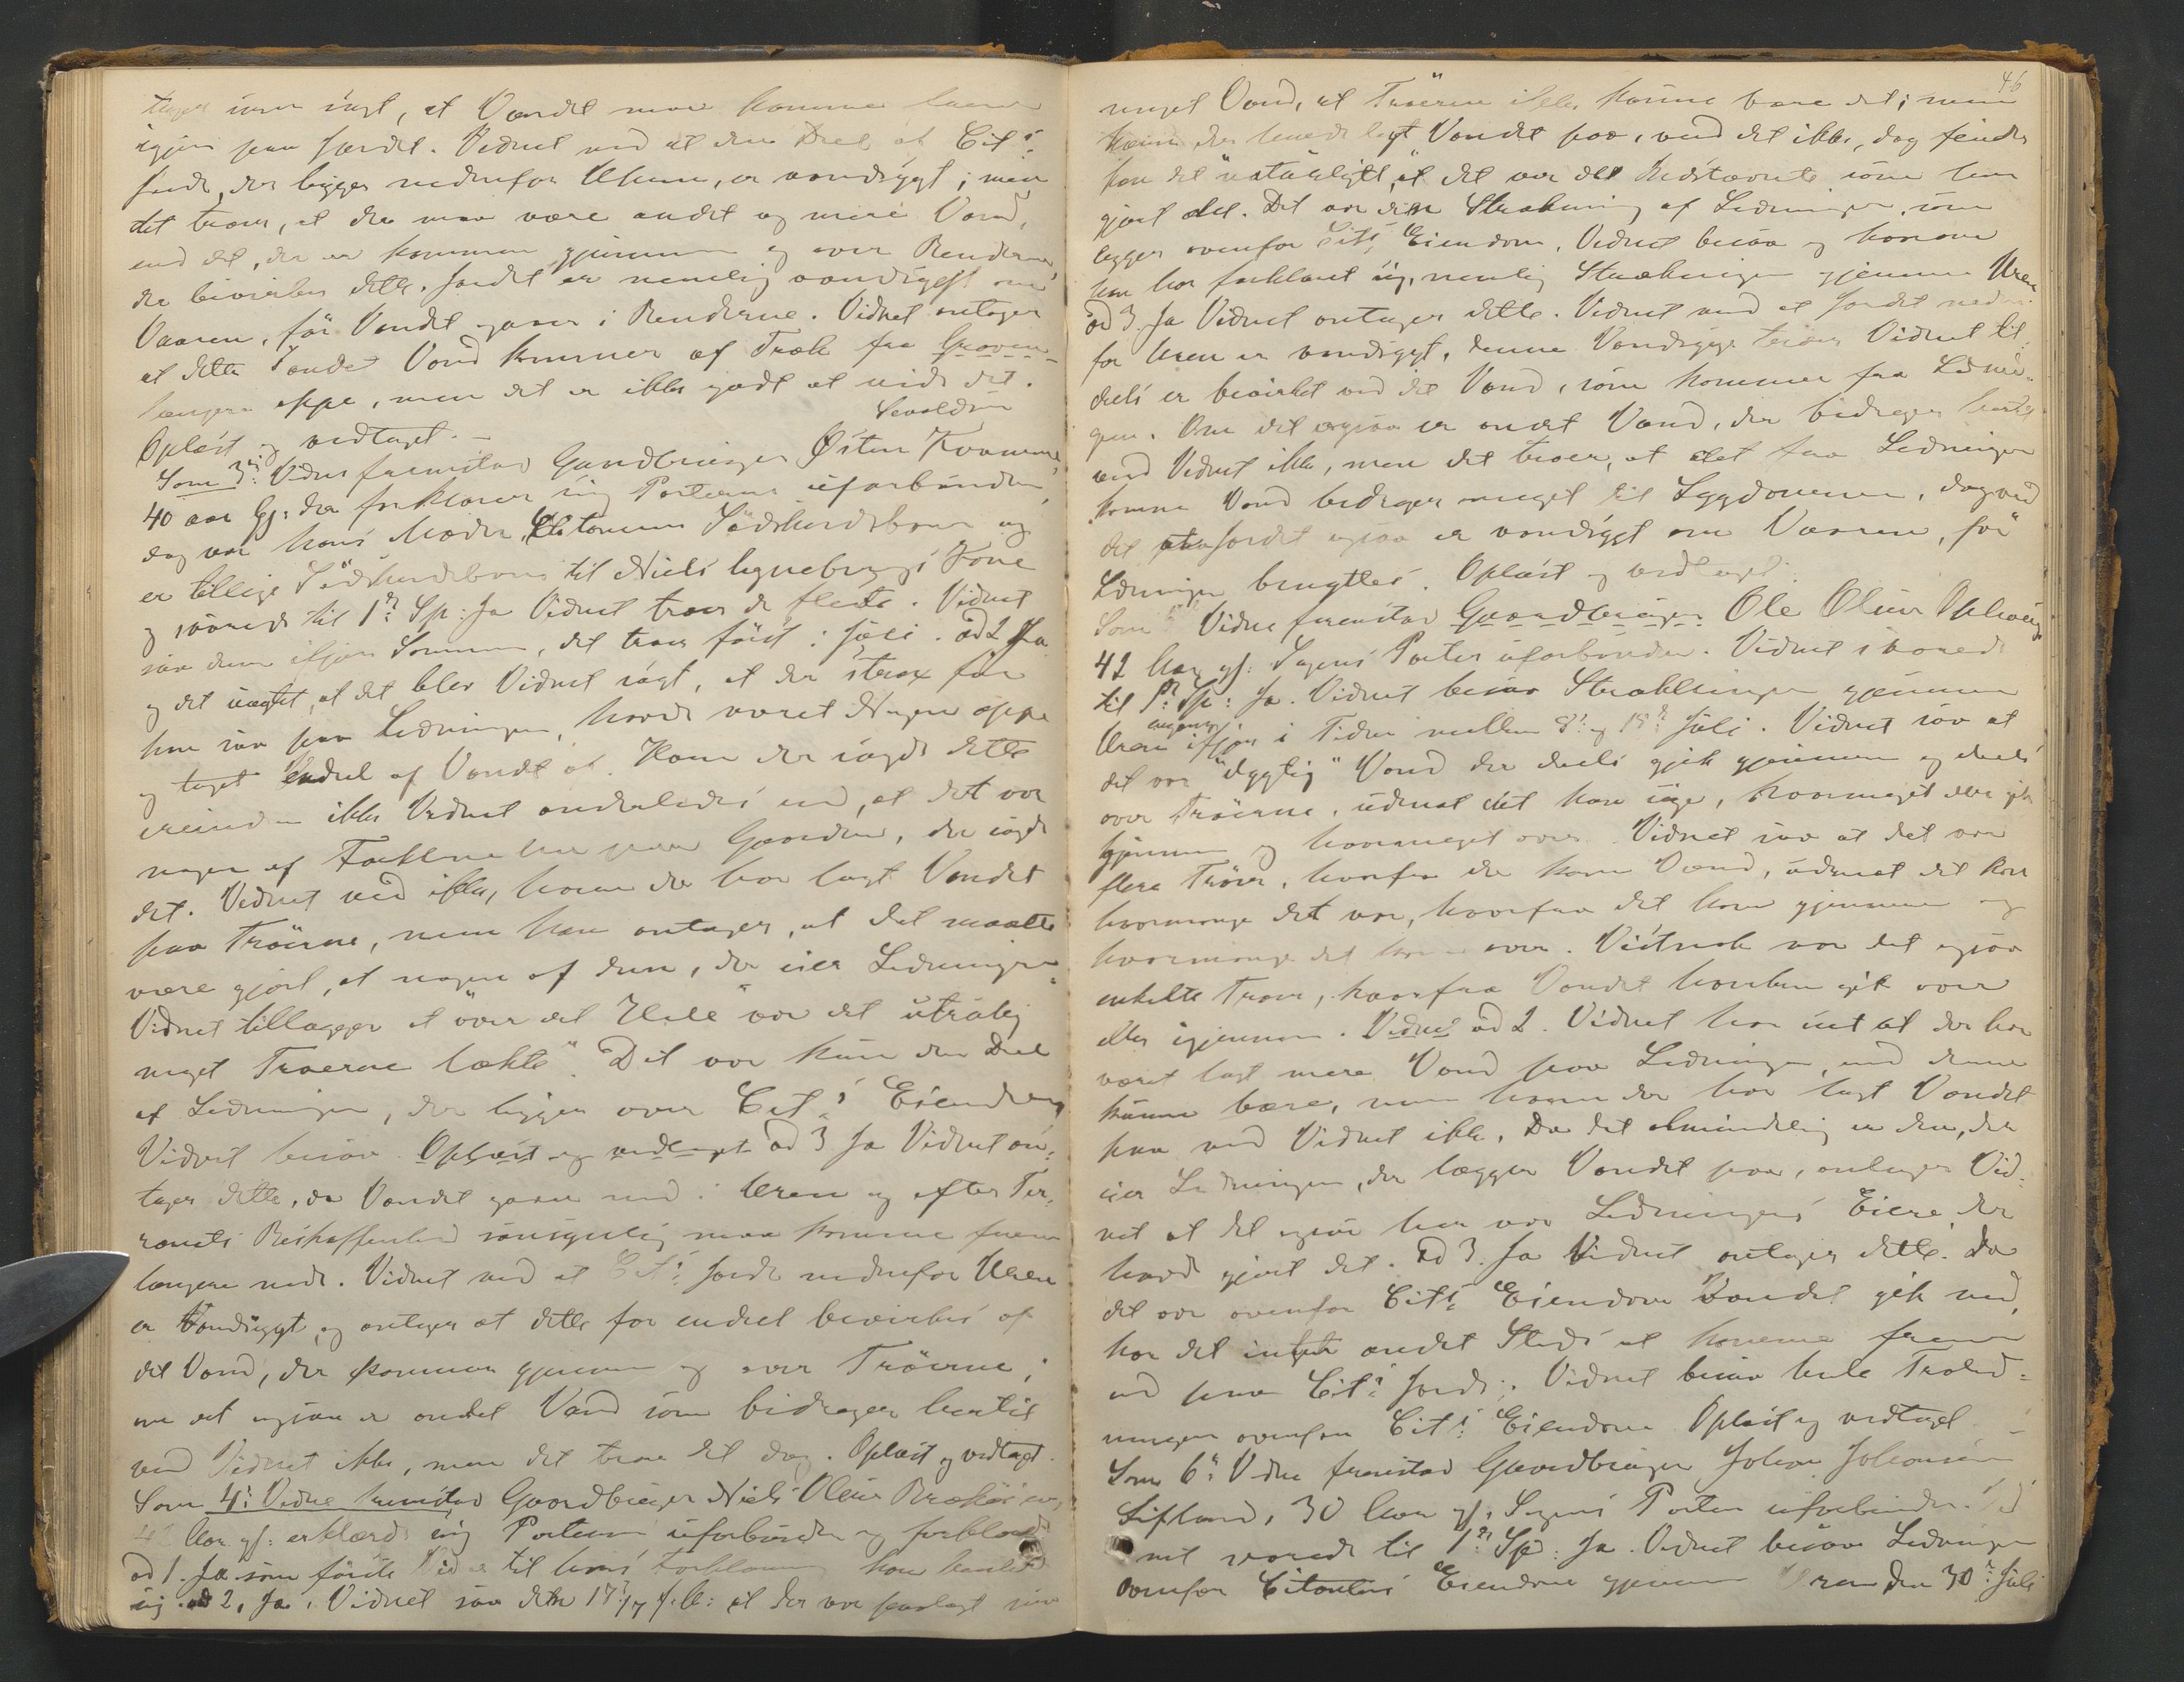 ikke sagt, at Vandet maa komme
igjen paa Jordet. Vidnet ved at den Deel af Cit.s
Jord, der ligger nedenfor Uhren, er vandsygt; men
det troer, at der maa være andet og mere Vand,
end det, der er kommen gjennem og over Renderne,
der bevirker dette. Jordet er nemlig vandsygt om
Vaaren, før Vandet gaaer i Renderne. Vidnet antager
at dette Vand kommer af Træk fra
længere oppe, men det er ikke godt at vide det.
Oplæst og vedtaget. –
Sevaldsen
Som 3die Vidne fremstod Gaardbruger Østen
40 aar gl: der forklarer sig Parterne uforbunden,
dog var hans Moder Citantens Sødskendebarn og
er tillige Sødskendebarn til Niels Kone
og svarede til 1ste Sp: Ja Vidnet troer de fleste. Vidnet
saa dem ifjor Sommer, det troer først i Juli. ad 2 Ja
og det uagtet, at det blev Vidnet sagt, at der strax før
han saa paa Ledningen, havde været Nogen oppe
og taget endeel af Vandet af. Hvem der sagde dette
erindrer ikke Vidnet anderledes end, at det var
nogen af Folkene her paa Gaarden, der sagde
det. Vidnet ved ikke, hvem der har lagt Vandet
paa Trøerne, men han antager, at det maatte
være gjort, af nogen af dem, der eier Ledningen.
Vidnet tillægger at "over det Hele" var det utrolig
meget Trøerne lækte". Det var kun den Deel
af Ledningen, der ligger over Cit.s Eiendom
Vidnet besaa. Oplæst og vedtaget ad 3 Ja Vidnet an-
tager dette, da Vandet gaaer ned i Uren og efter Ter-
rænets Beskaffenhed sansynlig maa komme frem
længere nede. Vidnet ved at Cit.s Jorde nedenfor Uren
er Vandsygt, og antager at dette for endeel bevirkes af
det Vand, der kommer gjennem og over Trøerne;
om det ogsaa er andet Vand som bidrager hertil
ved Vidnet ikke, men det troer det dog. Oplæst og vedtaget.
Som 4de Vidne fremstod Gaardbruger Niels Olsen
Aar gl: erklærede sig Parterne uforbunden og forklarede
ad 1. Ja som første Vidne til hans Forklaring han henholdt
sig. ad 2, Ja. Vidnet saa den 17/7 f. A: at der var paalagt saa
46
meget Vand, at Trøerne ikke kunne bære det; men
hvem der havde lagt Vandet paa, ved det ikke, dog finder
han det at det var det Indstævnte som har
gjort det. Det var den Strækning af Ledningen, som
ligger ovenfor Cit.s Eiendom, Vidnet besaa og hvorom
han har forklaret sig, nemlig Strækningen gjennem Uren
ad 3. Ja Vidnet antager dette. Vidnet ved at Jordet neden-
for Uren er vandsygt, denne Vandsyge troer Vidnet til-
dels er bevirket ved det Vand, som kommer fra Lednin-
gen. Om det ogsaa er andet Vand, der bidrager hertil
ved Vidnet ikke, men det troer, at det fra Ledningen
komne Vand bidrager meget til Sygdommen, dog ved
det at Jordet ogsaa er vandsygt om Vaaren, før
Ledningen benyttes. Oplæst og vedtaget.
Som Vidne fremstod Gaardbruger Ole Olsen
42 Aar gl: Sagens Parter uforbunden. Vidnet svarede
til 1ste Sp: Ja. Vidnet besaa Strækningen gjennem
Uren engang ifjor i Tiden mellem 8de og 15de Juli. Vidnet saa at
det var "dygtig" Vand der deels gik gjennem og deels
over Trøerne, uden at det kan sige, hvormeget der gik
gjennem og hvormeget over. Vidnet saa at det var
flere Trøer, hvorfra der kom Vand, uden at det kan
hvormange det var, hvorfra det kom gjennem og
hvormange det kom over. Vistnok var det ogsaa
enkelte Trøer, hvorfra Vandet hverken gik over
eller igjennem. Vidnet ad 2. Vidnet har seet at der har
været lagt mere Vand paa Ledningen, end denne
kunne bære, men hvem der har lagt Vandet
paa ved Vidnet ikke. Da det almindelig er den, der
eier Ledningen, der lægger Vandet paa, antager Vid-
net at det ogsaa her var Ledningens Eiere, der
havde gjort det. ad 3. Ja Vidnet antager dette. Da
det var ovenfor Cit.s Eiendom Vandet gik ned,
har det intet andet Sted at komme frem
end paa Cit.s Jorde. Vidnet besaa hele Trøled-
ningen ovenfor Cit.s Eiendom Oplæst og vedtaget –
Som 6te Vidne fremstod Gaardbruger Johan Johansen
30 Aar gl, Sagens Parter uforbunden. Vid-
net svarede til 1ste Sp: Ja. Vidnet besaa Ledningen
ovenfor Citantens Eiendom gjennem Uren den 30te Juli